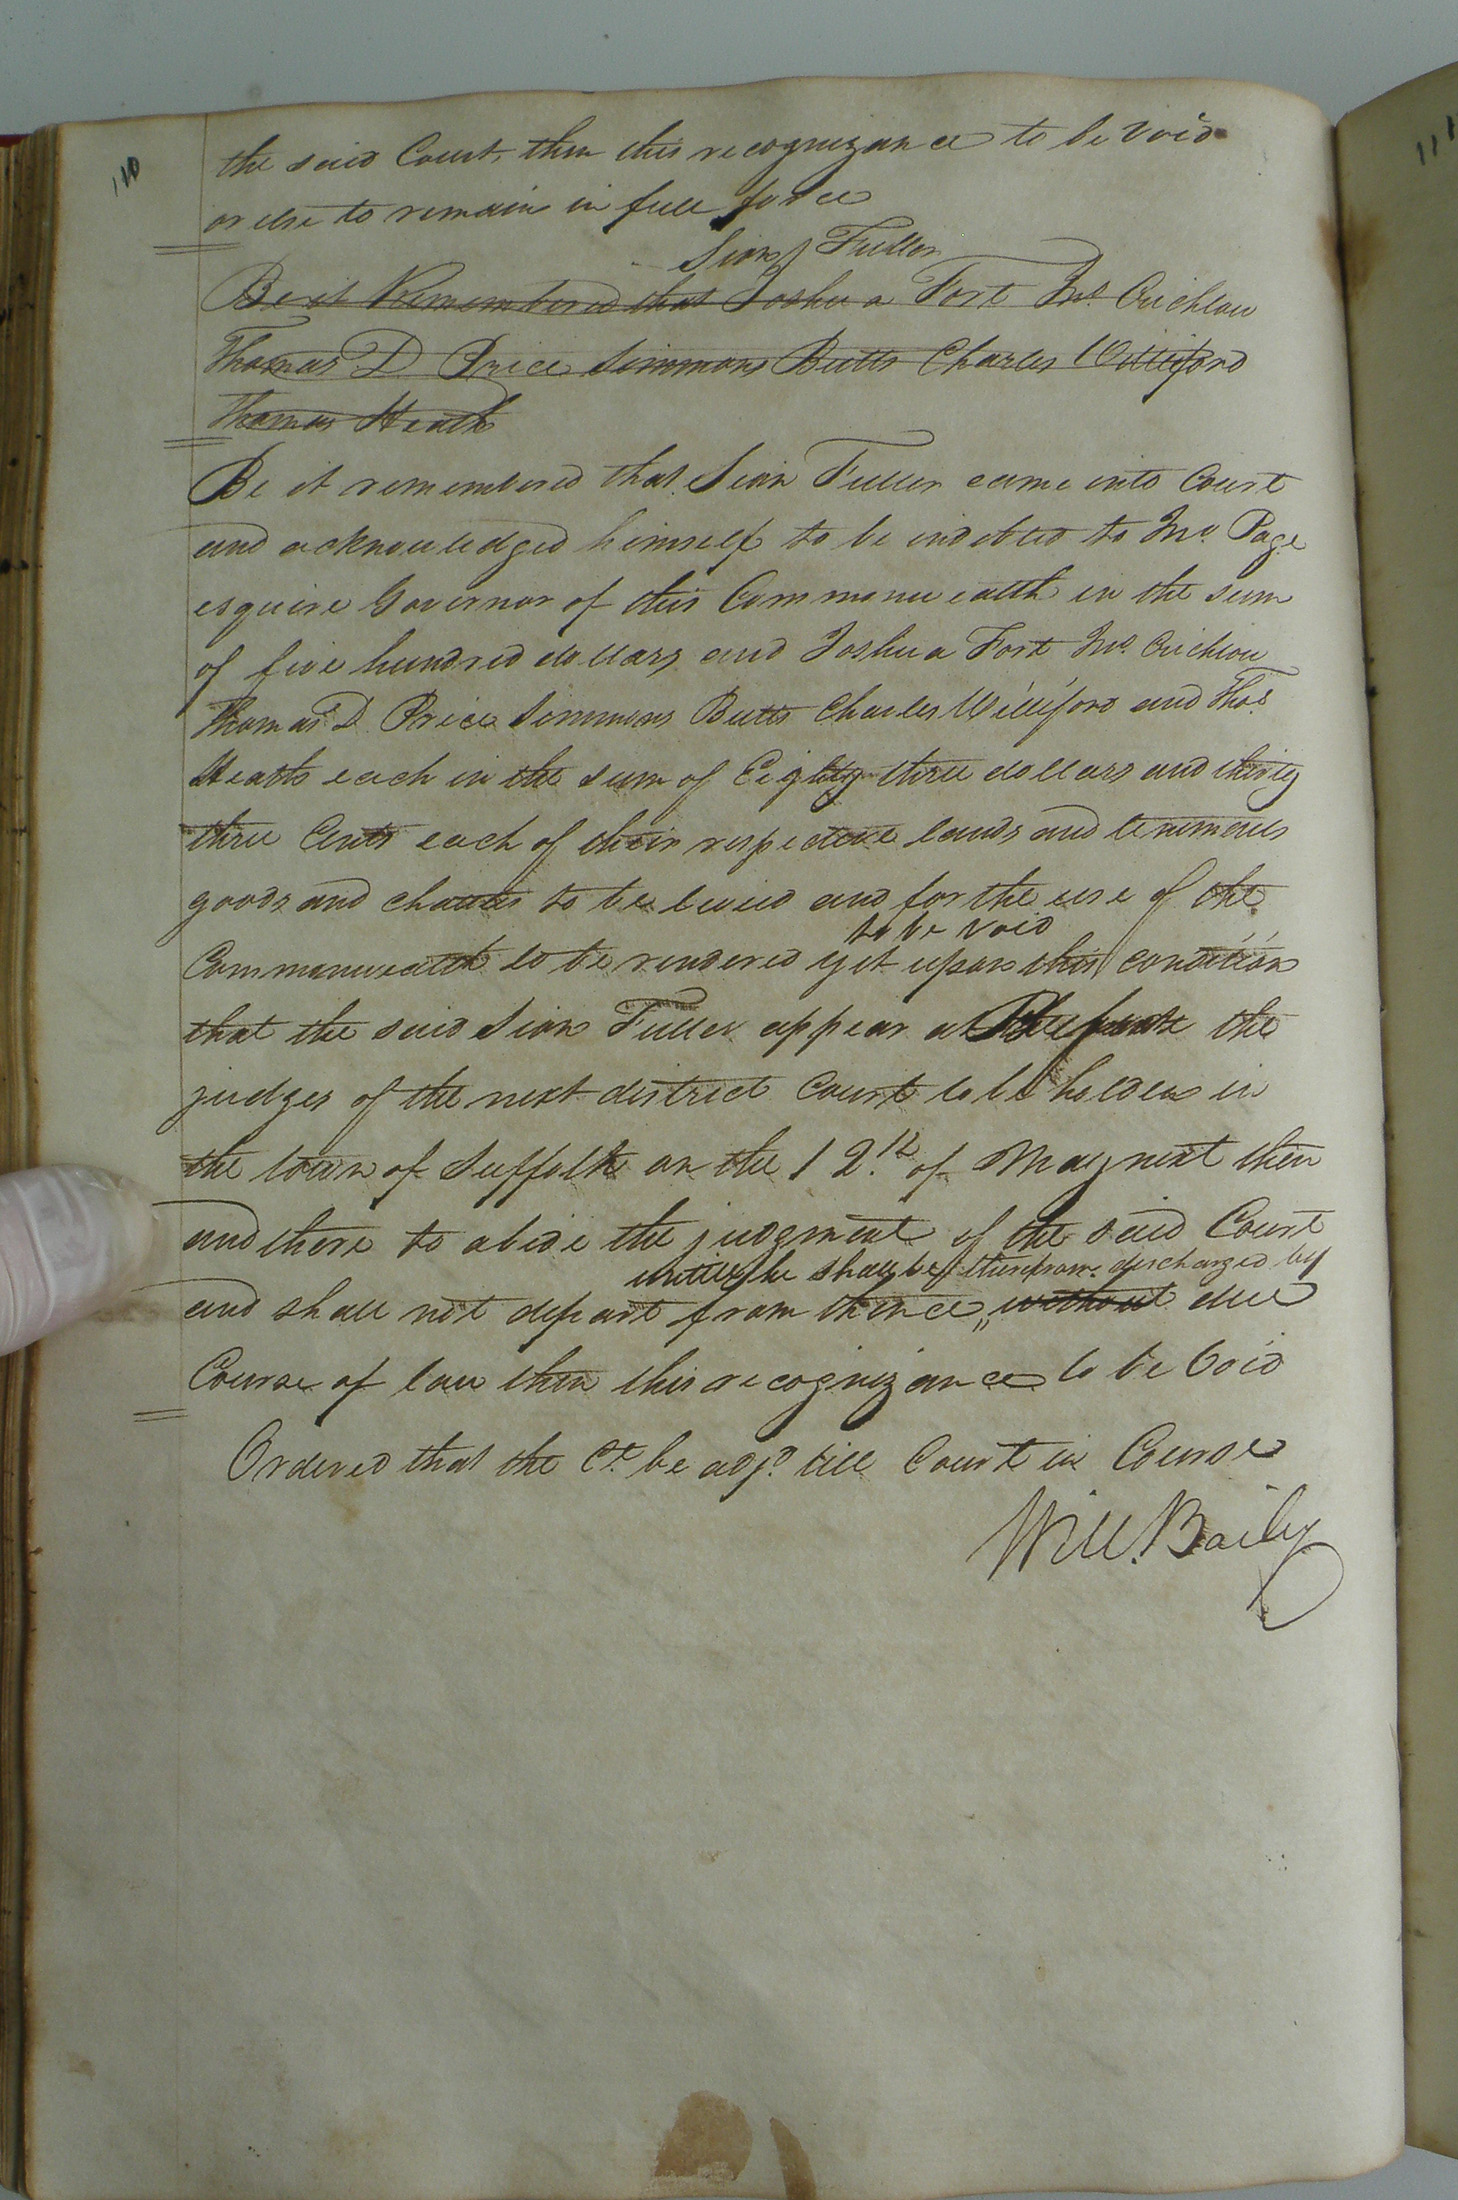 110
111
the said Court, then this recognizance to be void
or else to remain in full force
Sion Fuller
Be it Remembered that Joshua Fort Jno. Crichlow
Thomas D Price Simmons Butts Charles Williford
Thomas Heath
Be it remembered that Sion Fuller came into Court
and acknowledged himself to be indebted to Jno. Page
esquire Governor of this Commonwealth in the sum
of five hundred dollars and Joshua Fort Jno. Crichlow
Thomas D. Price Simmons Butts Charles Williford and Thos.
Heath each in the sum of Eighty three dollars and thirty
three Cents each of their respective lands and tenements
goods and chattes to be levied and for the use of the
to be void
Commonwealth to be rendered yet upon this condition
that the said Sion Fuller appear at the
judges of the next district Court to be holden in
the town of Suffolk on the 12.th of May next then
and there to abide the judgment of the said Court
untill he shall be therefrom discharged by
and shall not depart from thence without due
Course of law then this recognizance to be Void
Ordered that the Ct. be adjd. till Court in Course
Will. Baily